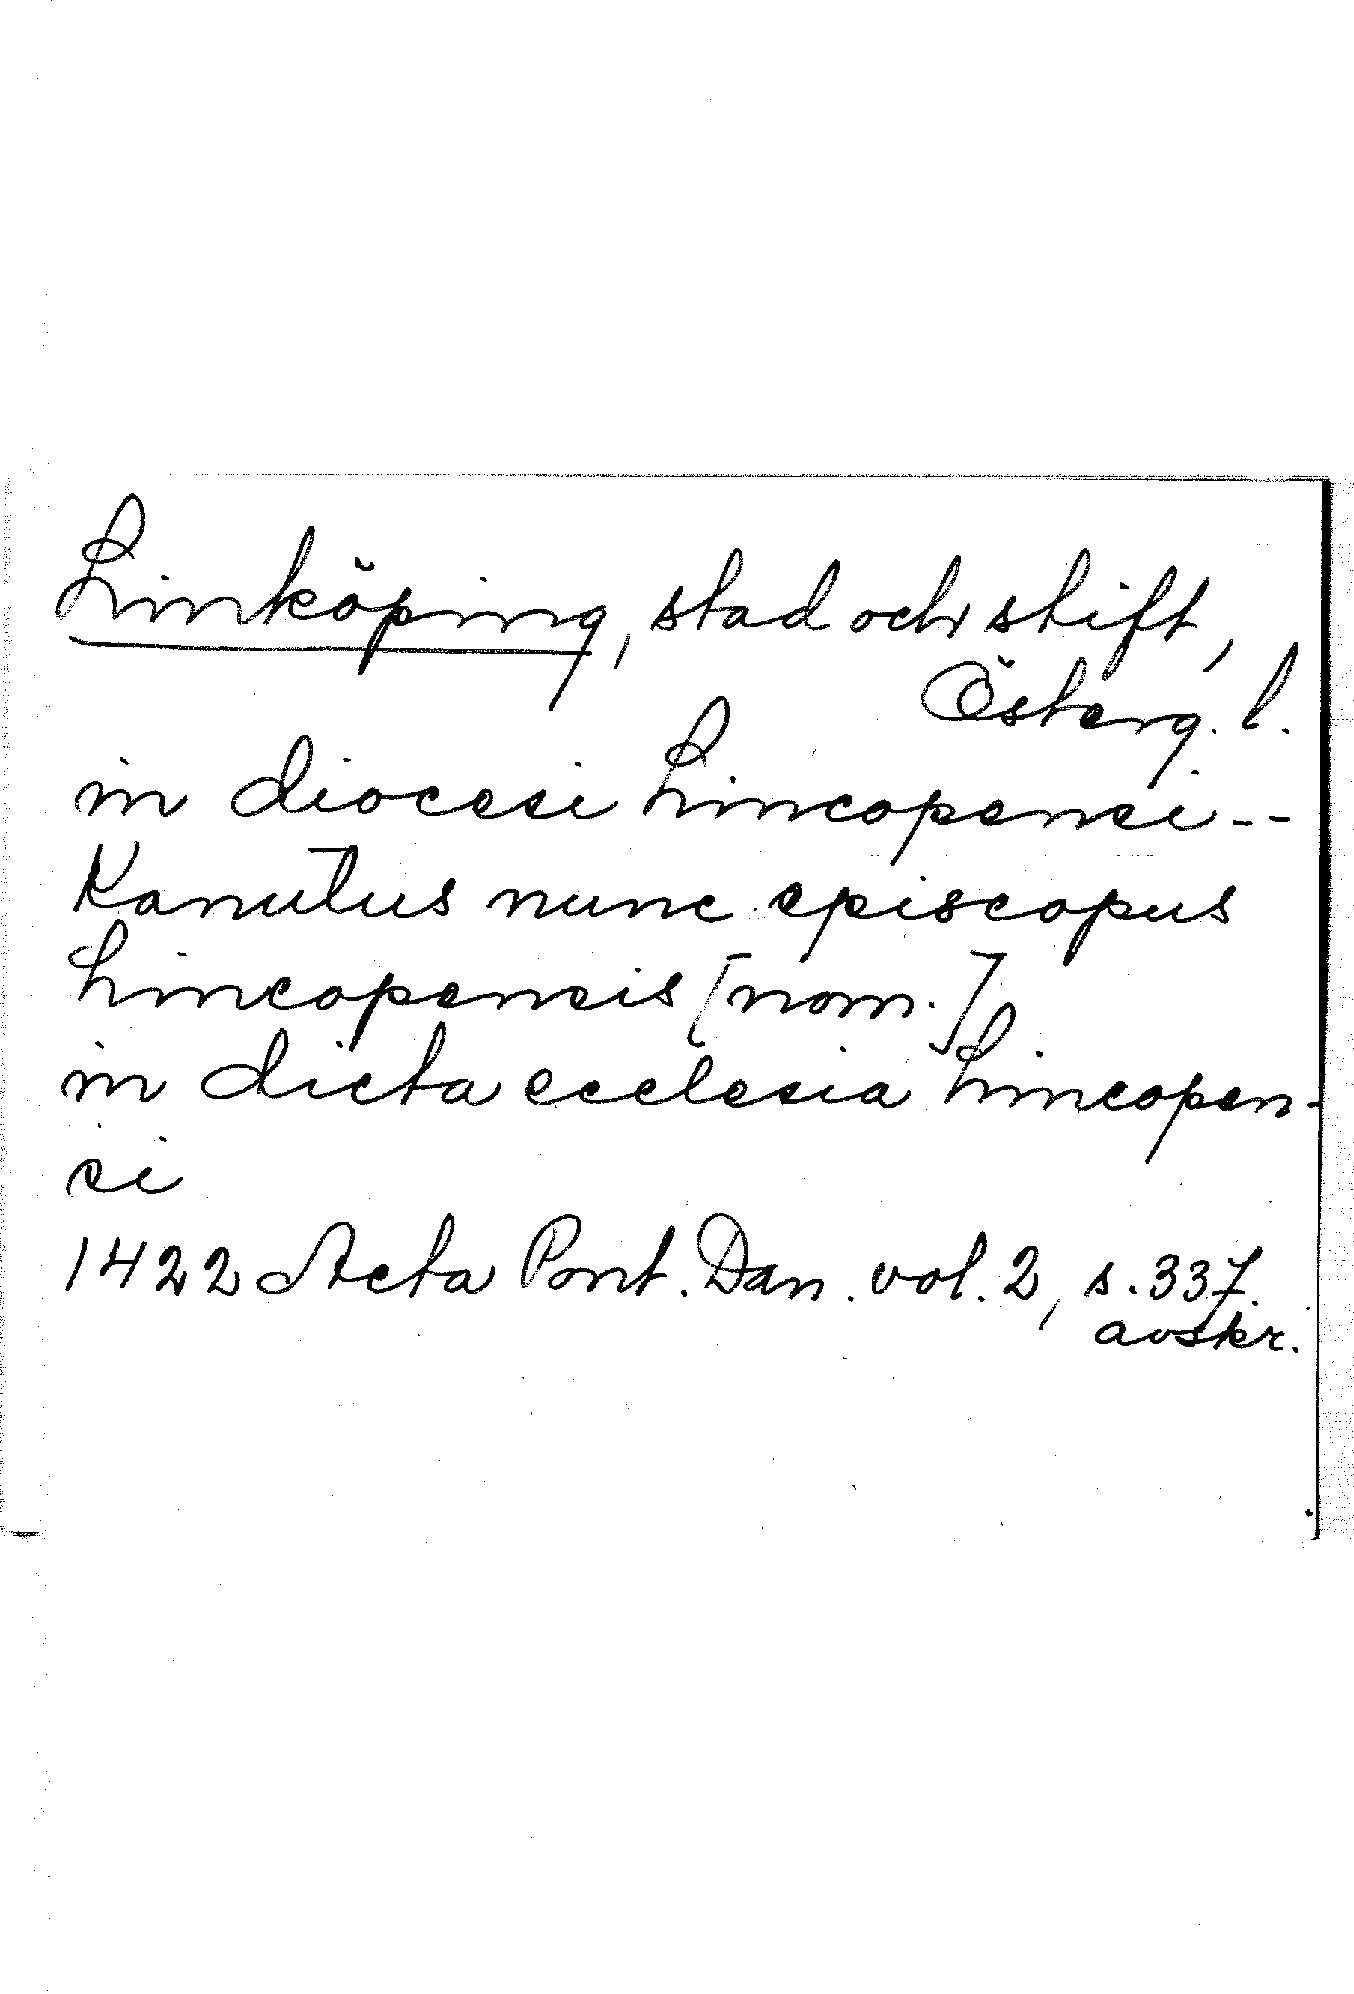 Linköping, stad och stift,
Österg. l.
in diocesi Lincopensi --
Kanutus nunc episcopus
Lincopensis [nom.]
in dicta ecclesia Lincopen-
si
1422 Acta Pont. Dan. vol. 2, s. 337.
avskr.